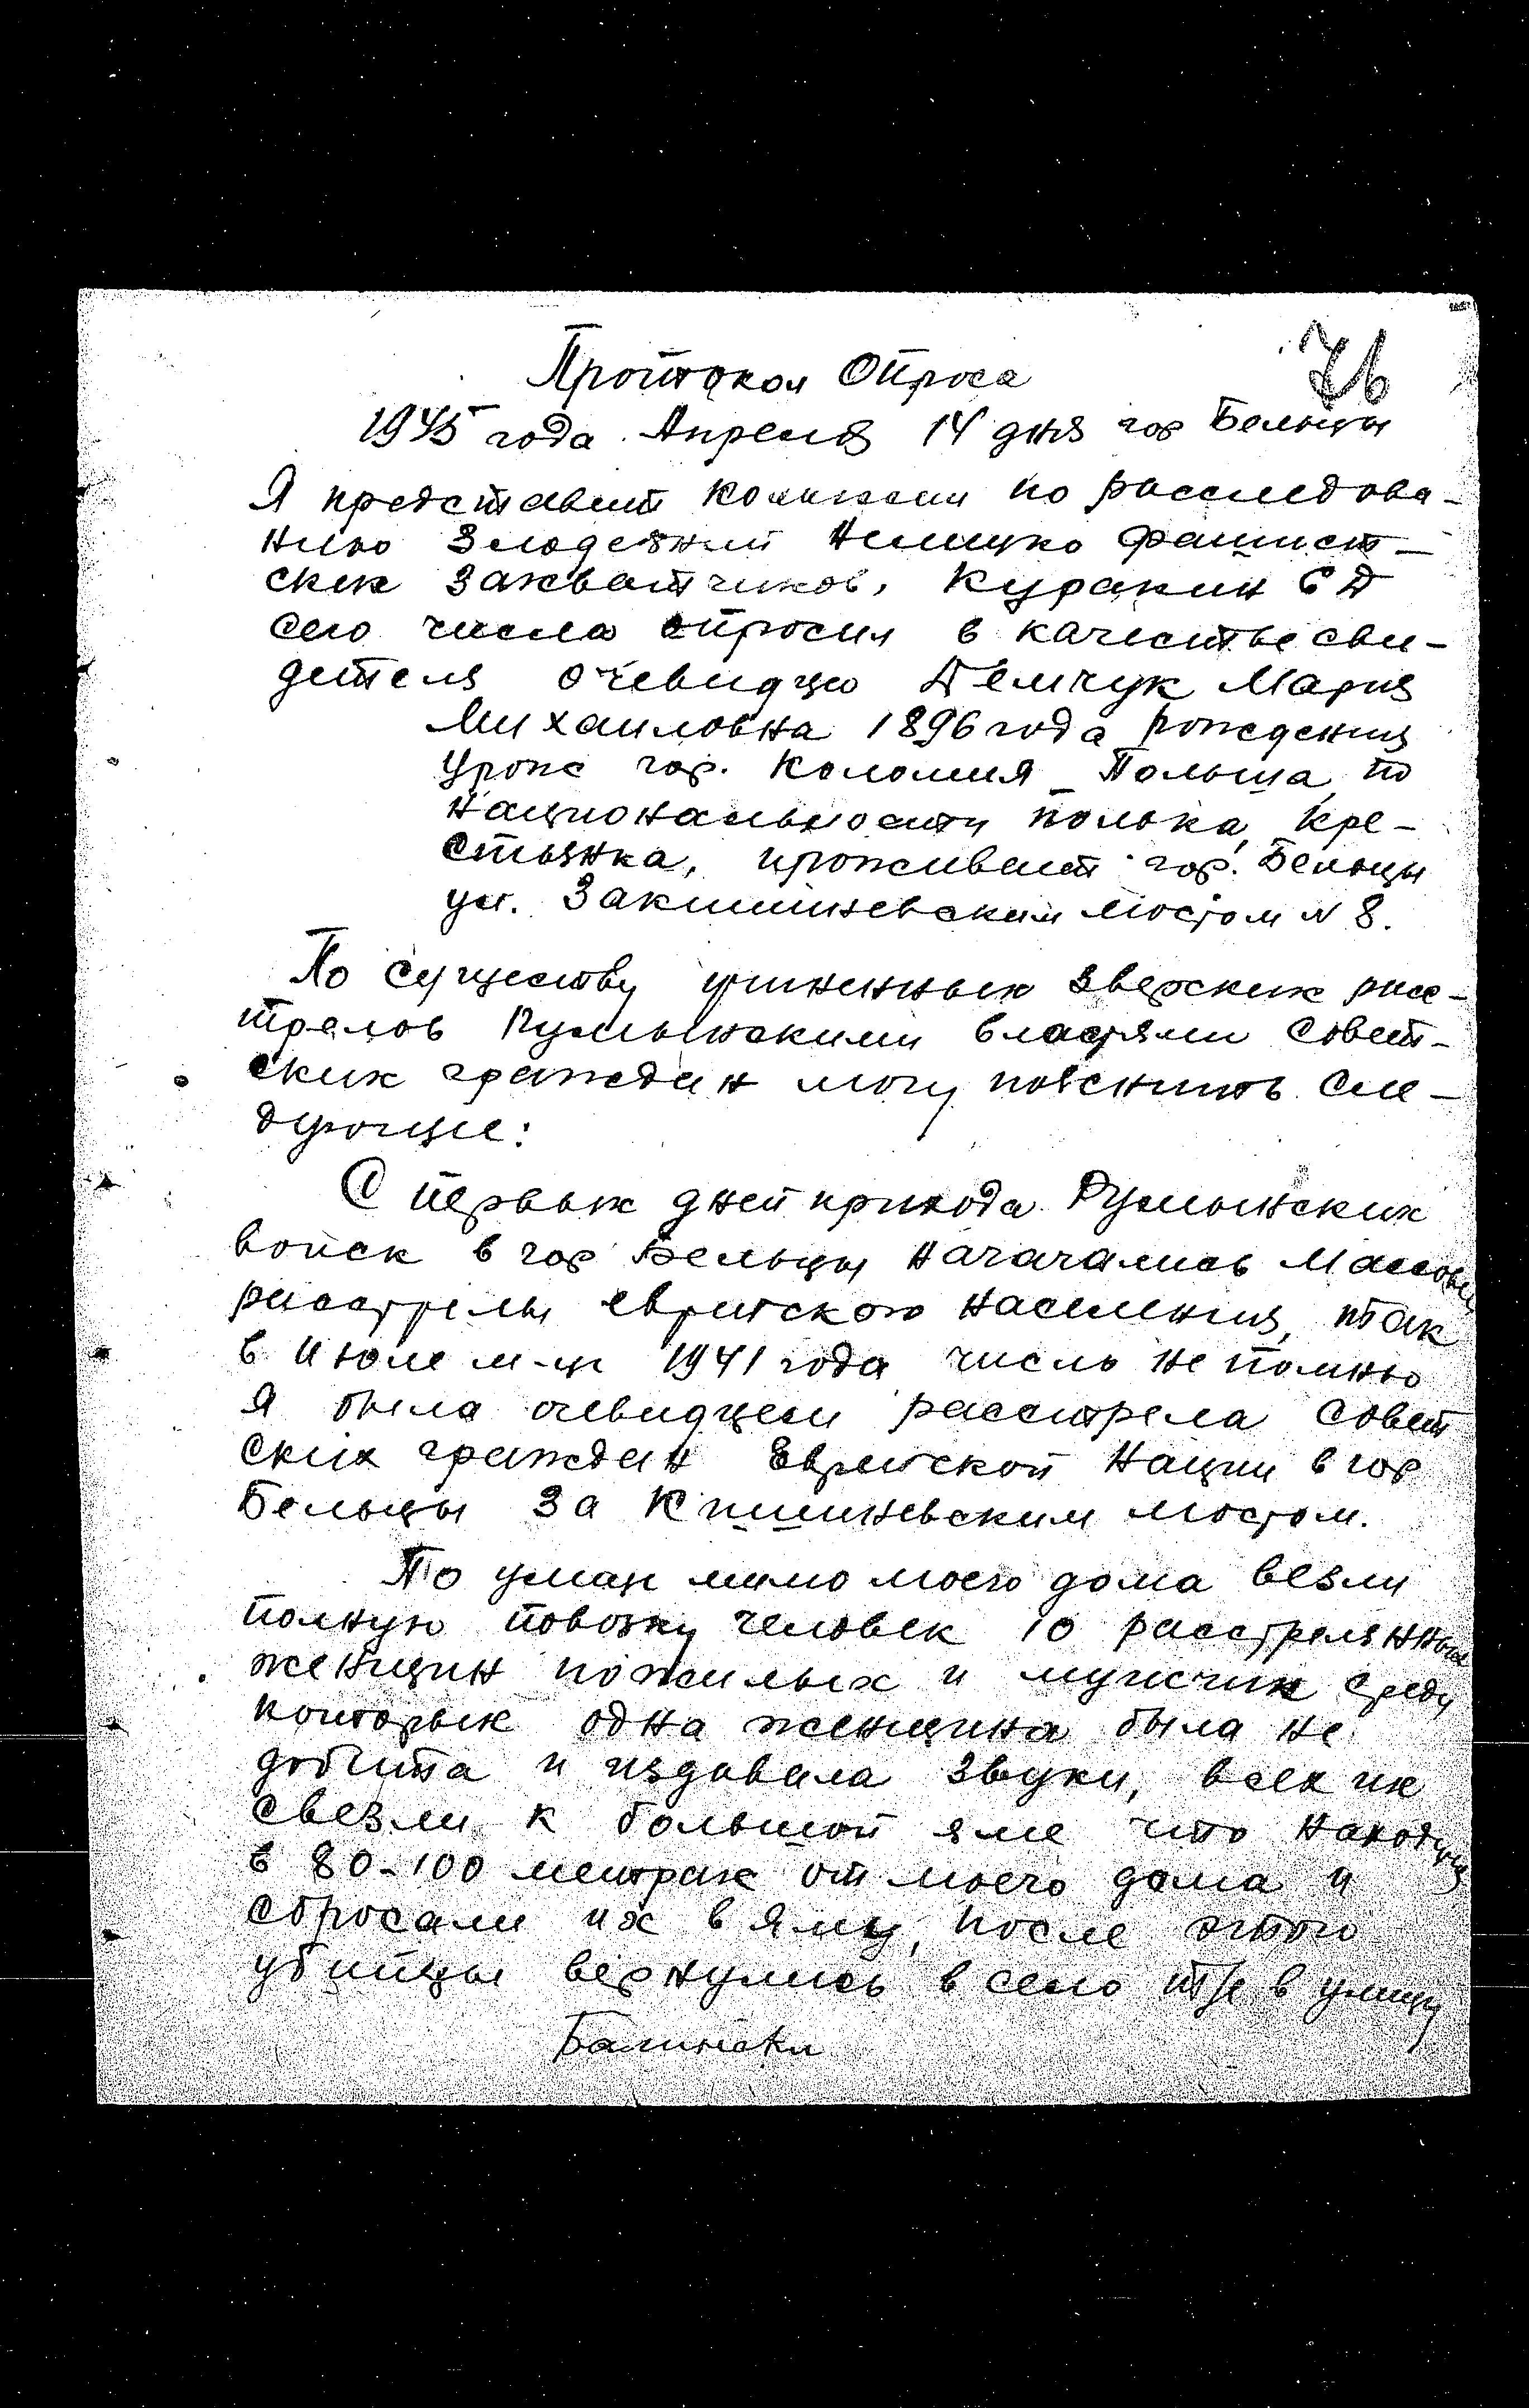 76
Протокол Опроса
1945 года Апреля 14 дня гор Бельцы
Я представит комиссии по расследова-
нию Злодеяний Немецко фашист-
ских Захватчиков, Куракин
сего числа опросил в качестве сви-
детеля очевидцы Демчук Мария
Михаиловна 1896 года рождения
Урож гор. Коломия Польша, по
национальности полька, Кре-
стьянка, проживает гор. Бельцы
ул. Закишиневским мостом № 8.
По существу учиненных зверских рас-
трелов Румынскими властями Совет-
ских граждан могу пояснить сле-
дующие:
С первых дней прихода Румынских
войск в гор Бельцы начачались Массовы
расстрелы еврейского населения, так
в Июле м-це 1941 года число не помню
я была очевидцем расстрела Совет
ских граждан Еврейской Нации в гор
Бельцы За Кишиневским мостом.
По улице мимо моего дома везли
полную повозку человек 10 расстрелянных
женщин пожилых и мужчин среди
которых одна женщина была не
добита и издавала звуки, всех их
свезли к большой яме что находится
в 80-100 метрах от моего дома и
сбросали их в яму, после этого
убийцы вернулись в село т/е в улицу